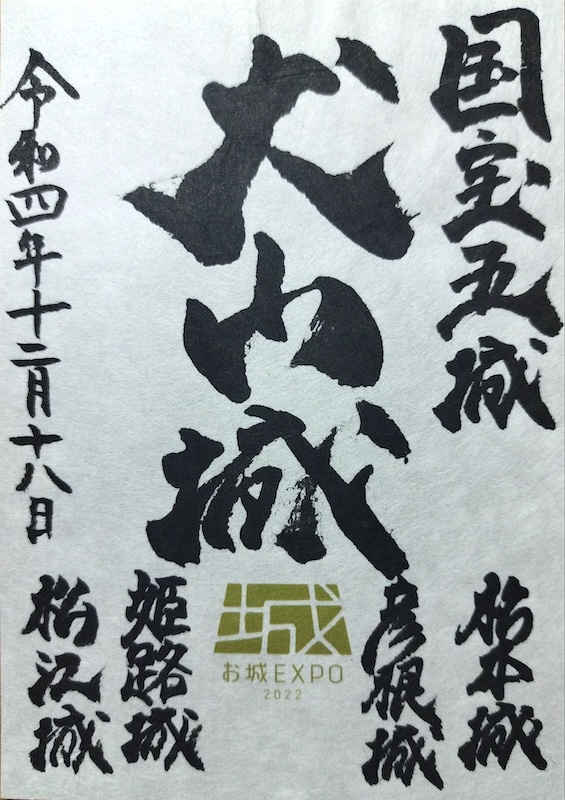 国宝五城
松本城
彦根城
犬山城
お城EXPO
2022
姫路城
令和四年十二月十八日
松江城